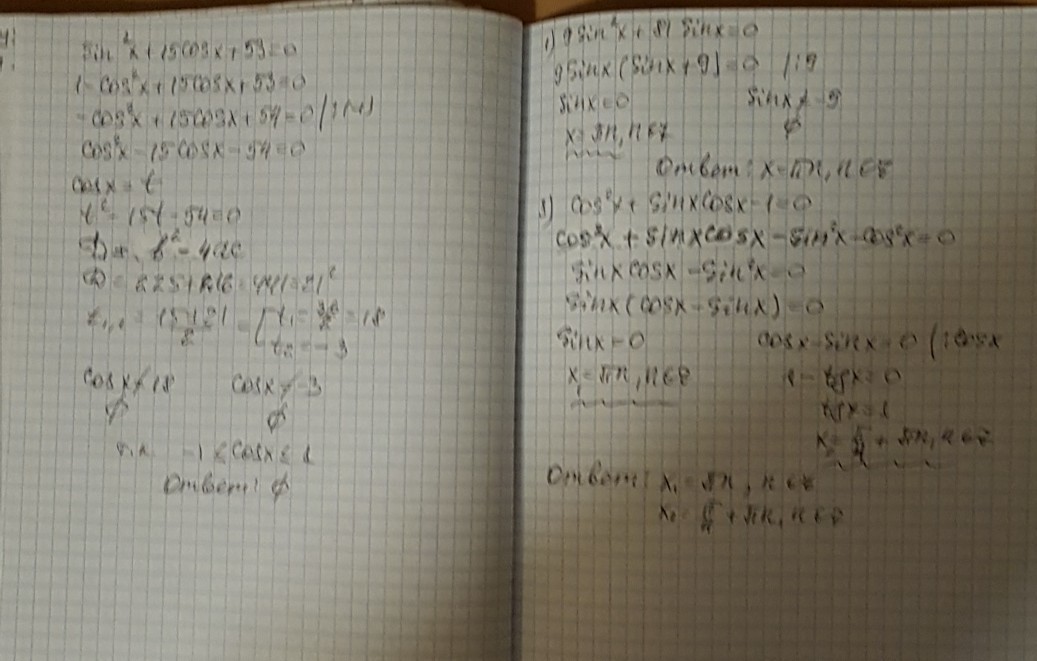 sin²x + 15cosx + 53 = 0
1 - cos²x + 15cosx + 53 = 0
-cos²x + 15cosx + 54 = 0 | :(-1)
cos²x - 15cosx - 54 = 0
cosx = t
t² - 15t - 54 = 0
D = b² - 4ac
D = 225 + 216 = 441 = 21²
t₁,₂ = (15 ± 21)/2 = [ t₁ = 36/2 = 18
t₂ = -3
cosx ≠ 18 cosx ≠ -3
∅ ∅
т.к. -1 ≤ cosx ≤ 1
Ответ: ∅
1) 9sin²x + 81 sinx = 0
9sinx(sinx + 9) = 0 | :9
sinx = 0 sinx ≠ -9
x = πn, n ∈ Z ∅
Ответ: x = πn, n ∈ Z
3) cos²x + sinxcosx - 1 = 0
cos²x + sinxcosx - sin²x - cos²x = 0
sinxcosx - sin²x = 0
sinx(cosx - sinx) = 0
sinx = 0 cosx - sinx = 0 | :cosx
x = πn, n ∈ Z 1 - tgx = 0
tgx = 1
x = π/4 + πn, n ∈ Z
Ответ: x₁ = πn, n ∈ Z
x₂ = π/4 + πn, n ∈ Z